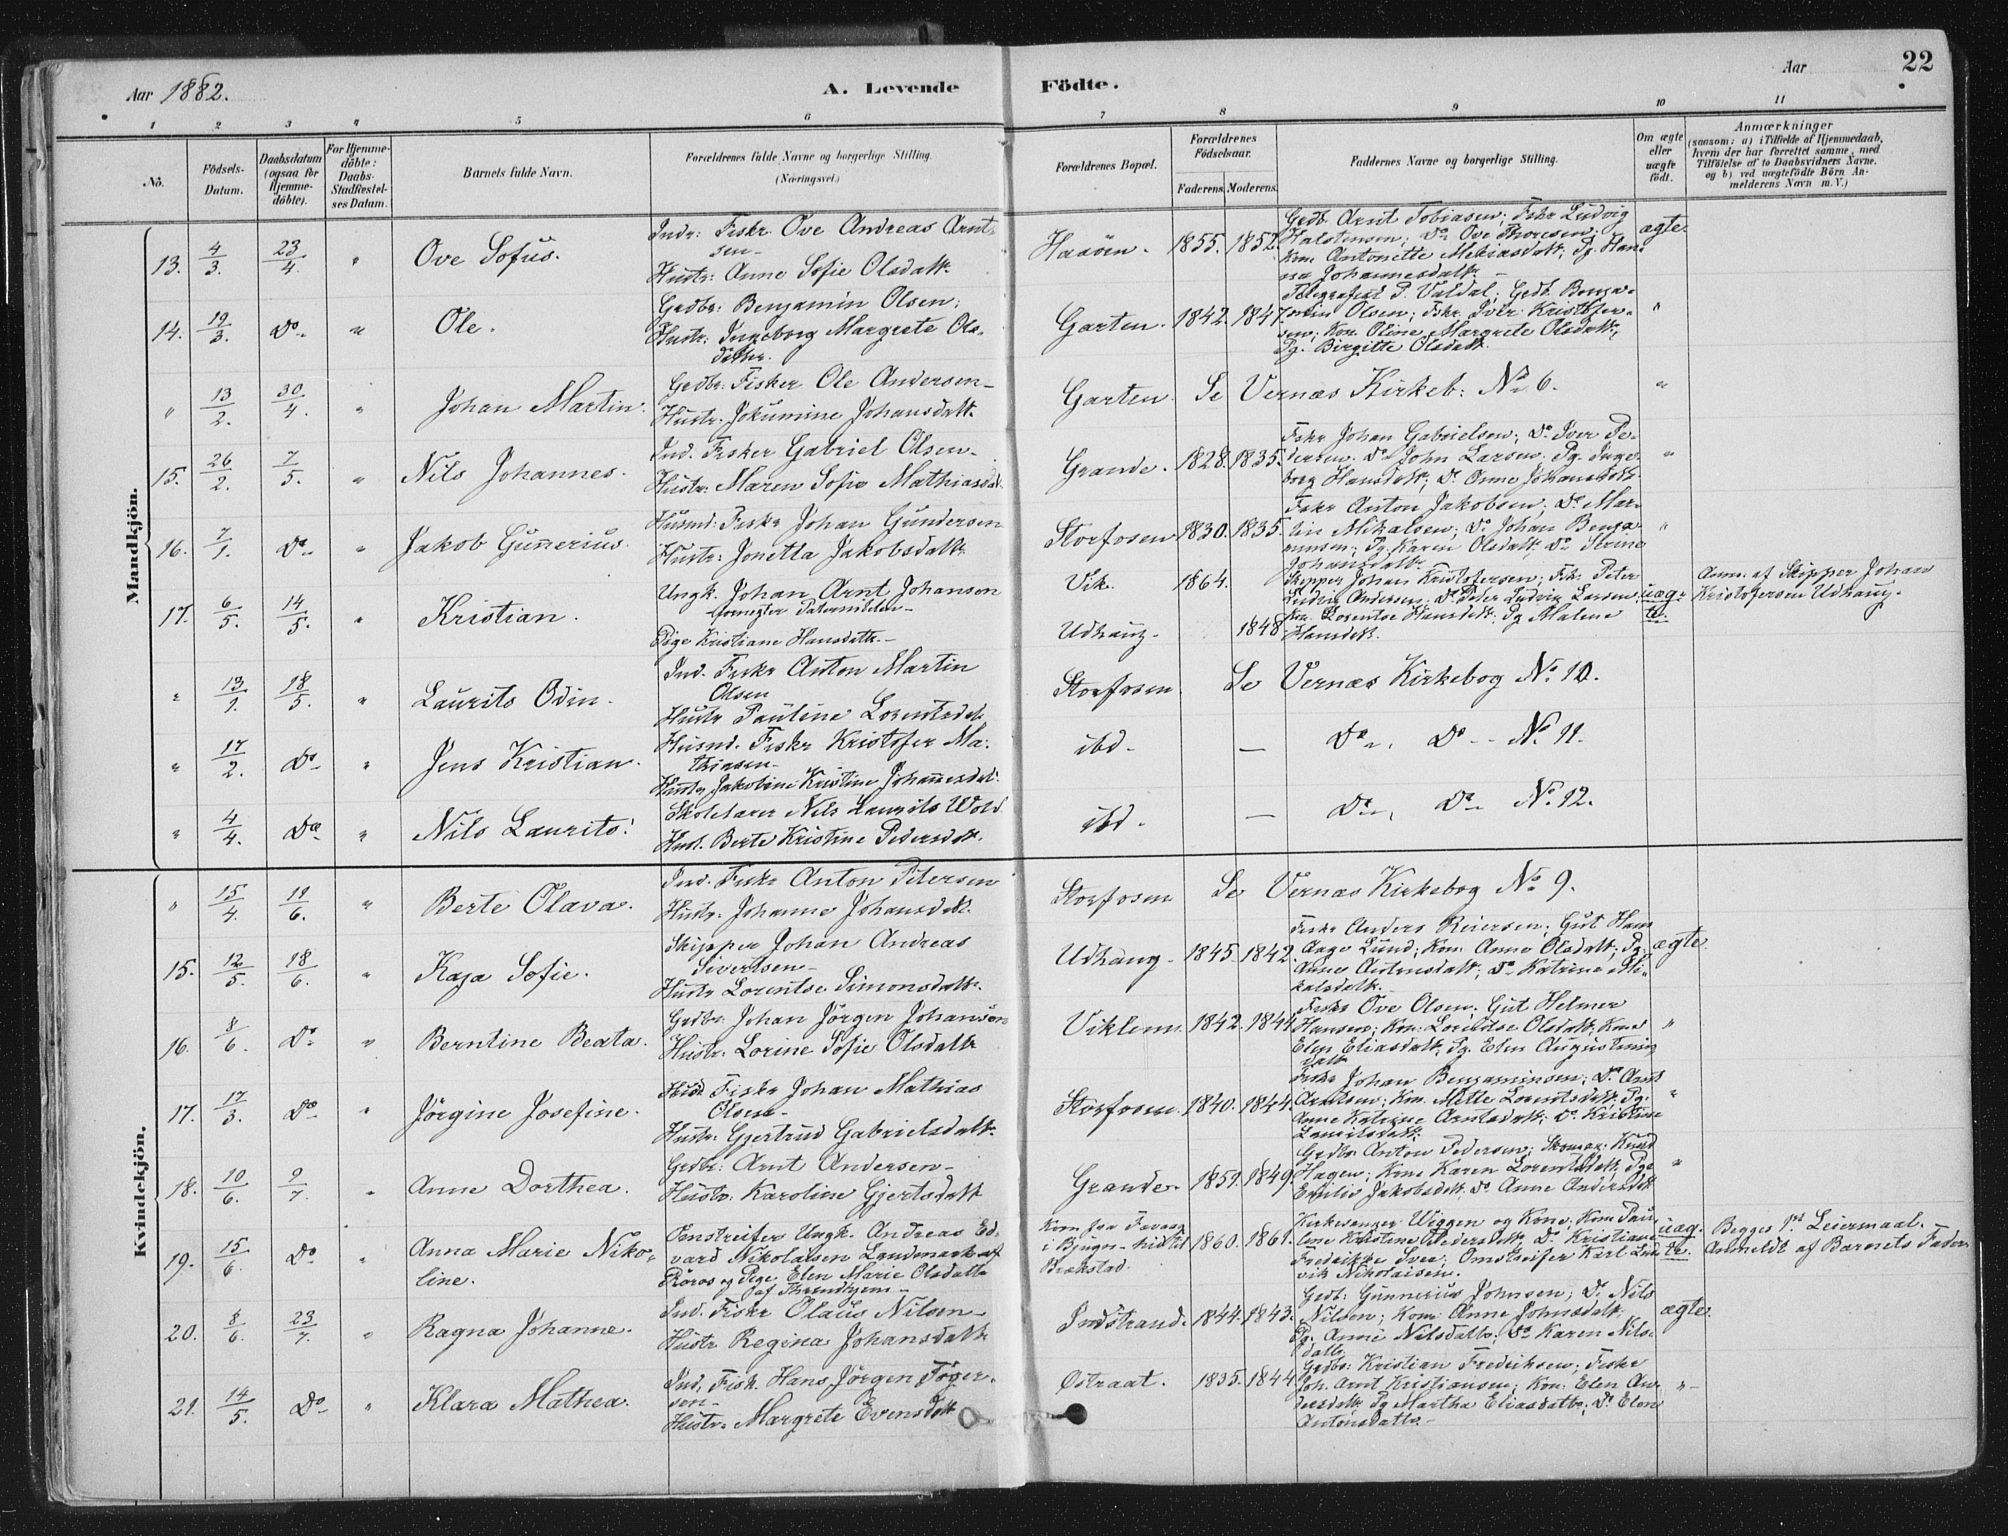 Aar 1882.
A. Levende
Födte.
Aar
22
1 2 3 4 5 6 7 8 9 10 11
No.
Födsels-Datum.
Daabsdatum (ogsaa for Hjemme-döbte).
For Hjemme-döbte: Daabs-Stadfæstel-ses Datum.
Barnets fulde Navn.
Forældrenes fulde Navne og borgerlige Stilling.
(Næringsvei.)
Forældrenes Bopæl.
Forældrenes Födselsaar.
Faderens. Moderens.
Faddernes Navne og borgerlige Stilling.
Om ægte eller uægte födt.
Anmærkninger
(saasom: a) i Tilfælde af Hjemmedaab, hvem der har forrettet samme, med Tilföielse af to Daabsvidners Navne, og b) ved uægtefödte Börn An-melderens Navn m. V.)
Mandkjön.
13. 4/3. 23/4. " Ove Sofus.
Indr: Fiskr Ove Andreas Arnt-
sen-
Hustr: Anne Sofie Olsdatt.
Haaöen. 1855. 1852.
Grdb. Arnt Tobiasen; Fskr Ludvig
Halstensen; Do Ove Thoresen;
Kone Antonette Mekiasdatt; Pg. Han-
na Johannesdatt.
ægte.
14. 19/3. Do " Ole.
Grdbr: Benjamin Olsen;
Hustr: Ingeborg Margrete Ols-
datter.
Garten. 1842. 1847.
Telegrafist P. Valdal; Grdb. Benja-
min Olsen; Fskr. Iver Kristofer-
sen; Kon. Oline Margrete Olsdatt;
Pg. Birgitte Olsdatt.
"
" 13/2. 30/4. " Johan Martin.
Grdbr: Fisker Ole Andersen-
Hustr. Jokumine Johansdatt.
Garten. Se Vernæs Kirkeb: No 6.
"
15. 26/2. 7/5. " Nils Johannes.
Ind. Fisker Gabriel Olsen-
Hustr: Maren Sofie Mathiasdat.
Grande. 1828. 1835.
Fskr Johan Gabrielsen; Do Iver Pe-
dersen. Do John Larsen. Pg. Inge-
borg Hansdatt; Do Anne Johansdatt.
"
16. 7/1. Do " Jakob Gunnerius.
Husmd: Fiskr Johan Gundersen
Hustr: Jonetta Jakobsdatt.
Storfosen 1830. 1835.
Fiskr Anton Jakobsen; Do Mar-
tin Mikalsen; Do Johan Benja-
minsen; Pg. Karen Olsdatt. Do Serine
Johansdatt.
"
17. 6/5. 14/5. " Kristian.
Ungk. Johan Arnt Johansen
Pige Kristiane Hansdattr.-
Vik. 1864.
Udhaug. 1848
Skipper Johan Kristofersen; Fsk. Peter
Ludvig Andersen. Do Peter Ludvig Larsen.
Kon. Lorentse Hansdatt. Pg Malene
Hansdatt.
uæg-
te.
Anm. af Skipper Johan
Kristofersen Udhaug.
" 13/1. 18/5. " Laurits Odin.
Ind. Fiskr Anton Martin
Olsen
Hustr Pauline Lorentsdat.
Storfosen. Se Vernæs Kirkebog No. 10.
" 17/2. Do " Jens Kristian.
Husmd. Fiskr Kristofer Ma-
thiasen-
Hustr Jakobine Kristine Johannesdat.
ibd. — Do, Do No. 11.
" 4/4. Do " Nils Laurits.
Skolelærer Nils Laurits Wold
Hust. Berte Kristine Pedersdatt.
ibd. — Do, Do No. 12.
Kvindekjön.
" 15/4. 11/6. " Berte Olava.
Ind. Fiskr Anton Petersen
Hustr: Johanne Johansdatt.
Storfosen Se Vernæs Kirkebog No 9.
15. 12/5. 18/6. " Kaja Sofie.
Skipper Johan Andreas
Sivertsen-
Hustr Lorentse Simonsdatt.
Udhaug- 1845. 1842.
Fiskr Anders Reiersen; Gut Hans
Aage Lund; Kon. Anne Olsdatt; Pg.
Anne Antonsdatt; Do Katrine Mi-
kalsdatt.
ægte.
16. 8/6. Do " Berntine Beata.
Grdbr: Johan Jörgen Johansen
Hustr: Lorine Sofie Olsdatt.
Viklem. 1842. 1844.
Fiskr Ove Olsen; Gut Helmer
Hansen; Kon. Lorentse Olsdatt; Kone
Elen Eliasdatt; Pg. Elen Augustinus-
datt.
"
17. 17/3. Do " Jörgine Josefine.
Husd Fiskr Johan Mathias
Olsen-
Hustr: Gjertrud Gabrielsdatt.
Storfosen. 1840. 1844.
Fiskr Johan Benjaminsen; Do Arnt
Arntsen; Kon. Mette Lorentsdatt; Pg.
Anne Katrine Arntsdatt. Do Kristine
Lauritsdatt.
"
18. 10/6. 9/7. " Anne Dorthea.
Grdbr: Arnt Andersen-
Hustr: Karoline Gjertsdatt
Grande. 1851. 1849.
Grdbr Anton Pedersen; Skomag: Knud
Hagen; Kone Karen Lorentsdatt. Pge
Emilie Jakobsdatt. Do Anne Andersdatt
"
19. 15/6. Do " Anna Marie Niko-
line.
Omstreifer Ungk. Andreas Ed-
vard Nikolaisen Landmark af
Röros og Pige Elen Marie Olsdatt
af Throndhjem-
i Bjugn- hid til
Brækstad.
1860. 1861.
Kirkesanger Wiggen og Kone; Kone Pau-
line Kristine Pedersdatt. Do Kristiane
Fredrikke Svee; Omstreifer Karl Lud-
vik Nikolaisen.
uæg-
te.
Begges 1ste Leiermaal.
Anmeldt af Barnets Fader
20. 8/6. 23/7. " Ragna Johanne.
Ind. Fiskr Olaus Nilsen-
Hustr Regina Johansdatt
Indstrand. 1844. 1843.
Grdb: Gunnerius Johnsen; Do Nils
Nilsen; Kone Anne Johnsdatt;
Pg. Anne Nilsdattr; Do Karen Nils-
dattr.
ægte.
21. 14/5. Do " Klara Mathea.
Ind. Fisk. Hans Jörgen Töger-
sen-
Hustr. Margrete Evensdatt
Østraat. 1835. 1844
Grdbr: Kristian Fredriksen; Fiskr
Joh. Arnt Kristiansen; Kon: Elen An-
dersdatt; Pg Martha Eliasdattr; Do Elen
Antonsdattr.-
"